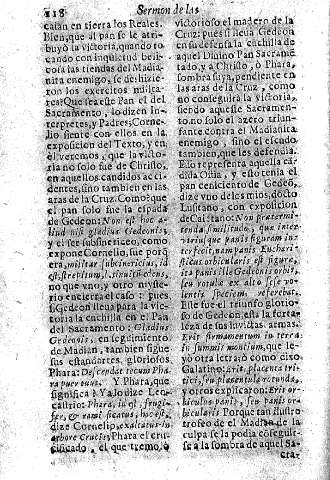 118 Sermon de las
caian en tierra los Reales.
Bien, que al pan se le atri-
buyò la victoria, quando ro
cando con inquietud beli-
cosa las tiendas del Madia-
nita enemigo, se deshizie-
ron los exercitos milita-
res: Que sea este Pan el del
Sacramento, lo dizen In-
terpretes, y Padres; Corne-
lio siente con ellos en la
exposicion del Texto, y en
èl veremos, que la victo-
ria no solo fue de Christo,
en aquellos candidos acci-
dentes, sino tambien en las
aras de la Cruz. Como? que
el pan solo fue la espada
de Gedeon: Non est hoc a-
liud nisi gladius Gedeonis,
y el ser subsinericeo, como
expone Cornelio, fue porq̃
era, militar subsinericius, id
est, strepitum,
no que vno, y otro myste-
rio encierra el caso: pues
si Gedeon lleva para la vic-
toria la cuchilla en el Pan
del Sacramento: Gladius
Gedeonis, en seguimiento
de Madian, tambien sigue
sus estandartes, gloriosos
Phara: Descendat tecum Pha
ra puer tuus. Y Phara, que
significa? Ya lo dize Len-
castrio: Phara, id est, frugi-
fer, & rami ficatus, hoc est,
dize Cornelio, exaltatus in
arbore Crucis; Phara el cru-
cificado, el que tremolò
victorioso el madero de la
Cruz; pues si lleva Gedeon
en su defensa la cuchilla de
aquel Divino Pan Sacramen
tado, y a Christo, ò Phara,
sombra suya, pendiente en
las aras de la Cruz, como
no conseguirà la victoria,
siendo aquesse Sacramen-
to no solo el azero triun-
fante contra el Madianita
enemigo, sino el escudo
tambien, que les defendia.
Esso representa aquella can
dida Ostia, y esso tenia el
pan ceniciento de Gedeõ,
dize vno de los mios, docto
Lusitano, con exposicion
de Caietano: Non pretermit-
tenda similitudo, que inter-
verti usque panis figuram in-
tercessit, nam panis Euchari-
sticus orbicularis est figuræ,
ita panis ille Gedeonis orbis,
seu rotulæ ex alto sese vol-
ventis speciem referebat.
Este fue el triunfo glorio-
so de Gedeon, esta la forta-
leza de sus invictas armas.
Erit firmamentum in terra
in summis montium, que le-
yò otra letra ò como dixo
Galatino: Erit placenta tri-
tici, seu placentula rotunda,
y otros explicaron: Erit or-
bis panis, seu panis or-
bicularis Porque tan ilustro
trofeo de el Madian de la
culpa se la podia cõseguir-
se a la sombra de aquel Sa-
cra-